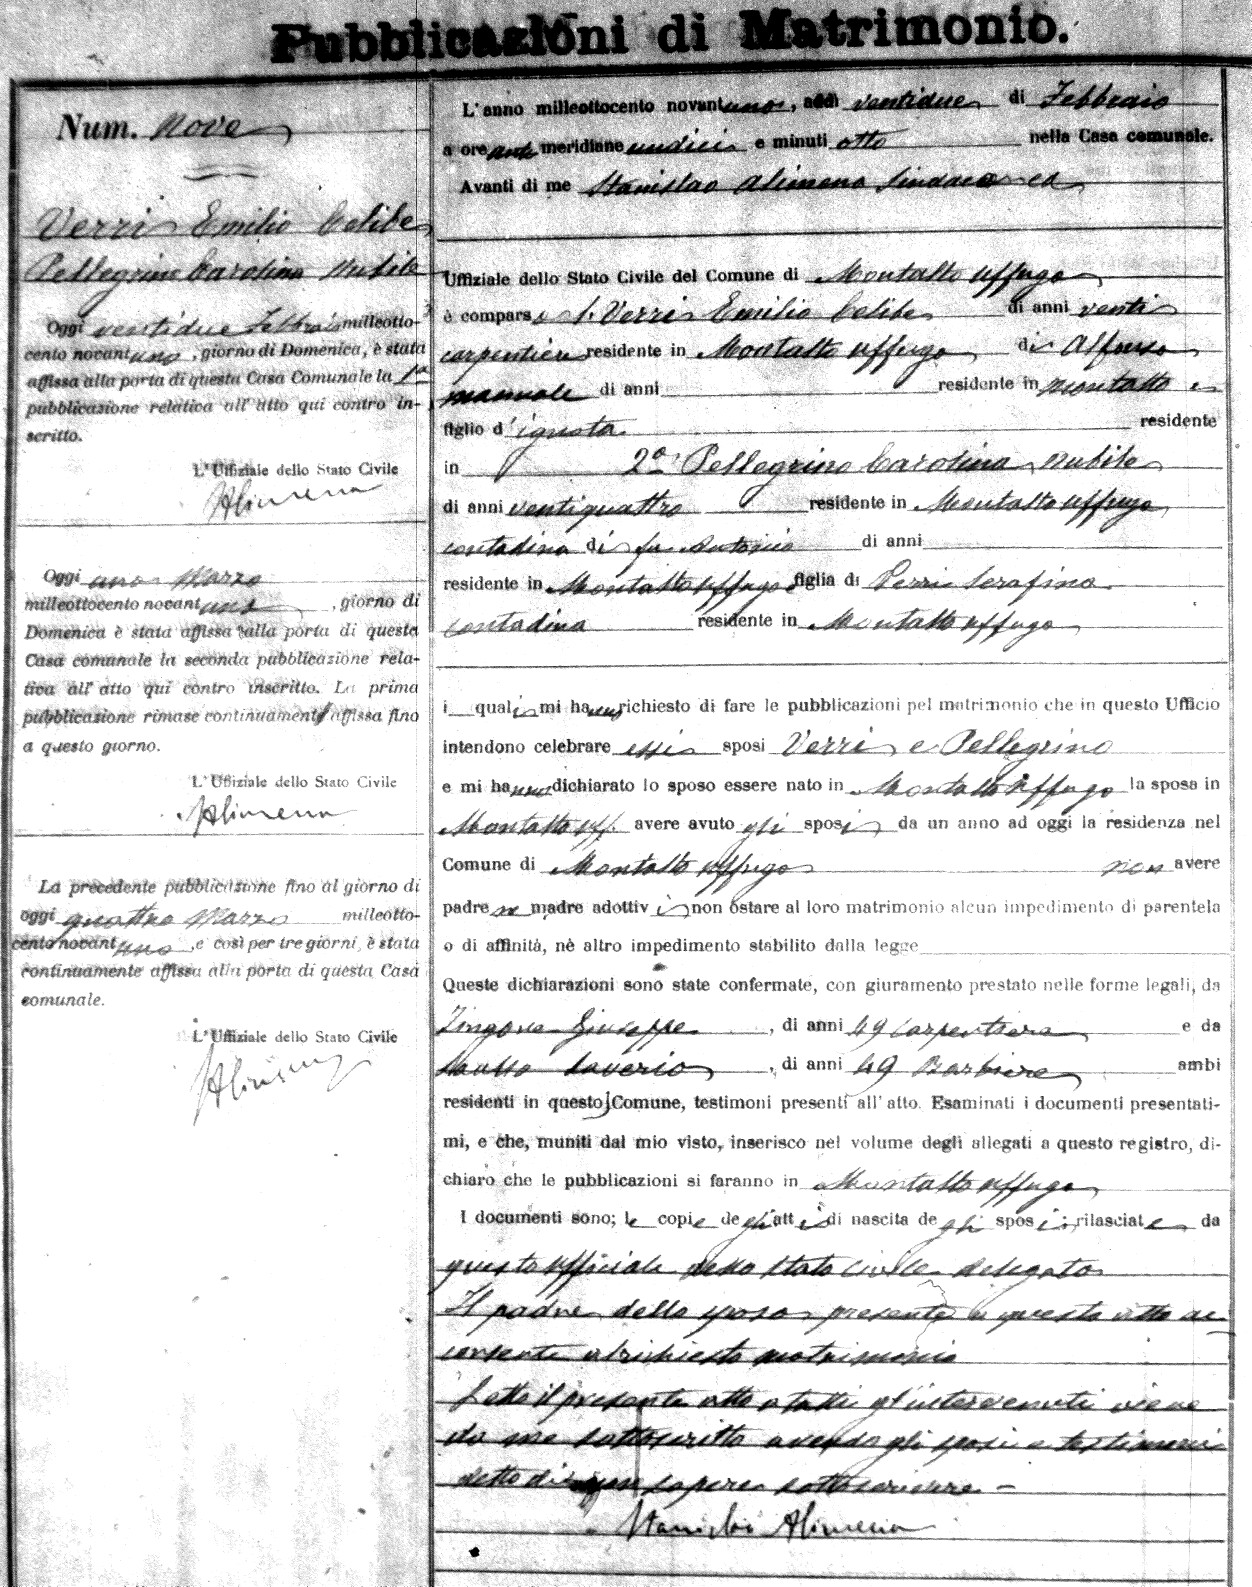 Pubblicazioni di Matrimonio.
Num. nove
Verri Emilio Celibe
Pellegrino Carolina Nubile
Oggi ventidue Febbraio milleotto-
cento novantuno, giorno di Domenica, è stata
affissa alla porta di questa Casa Comunale la 1a
pubblicazione relativa all' atto qui contro in-
scritto.
L'Uffiziale dello Stato Civile
SAlimena
Oggi uno Marzo
milleottocento novantuno, giorno di
Domenica è stata affissa alla porta di questa
Casa comunale la seconda pubblicazione rela-
tiva all' atto qui contro inscritto. La prima
pubblicazione rimase continuamente affissa fino
a questo giorno.
L'Uffiziale dello Stato Civile
SAlimena
La precedente pubblicazione fino al giorno di
oggi quattro Marzo milleotto-
cento novantuno, e così per tre giorni, è stata
continuamente affissa alla porta di questa Casa
comunale.
L'Uffiziale dello Stato Civile
SAlimena
L'anno milleottocento novantuno, addì ventidue di Febbraio
a ore ante meridiane undici e minuti otto nella Casa comunale.
Avanti di me Stanislao Alimena Sindaco ed
Uffiziale dello Stato Civile del Comune di Montalto Uffugo
è comparso 1. Verri Emilio Celibe di anni venti
carpentiere residente in Montalto Uffugo di Alfonso
manuale di anni residente in Montalto e
figlio d'ignota residente
in 2a Pellegrino Carolina, Nubile
di anni ventiquattro residente in Montalto Uffugo
contadina di fu Antonio di anni
residente in Montalto Uffugo e figlia di Perri Serafina
contadina residente in Montalto Uffugo
i quali mi hanno richiesto di fare le pubblicazioni pel matrimonio che in questo Ufficio
intendono celebrare essi sposi Verri e Pellegrino
e mi hanno dichiarato lo sposo essere nato in Montalto Uffugo la sposa in
Montalto Uff. avere avuto gli sposi da un anno ad oggi la residenza nel
Comune di Montalto Uffugo non avere
padre ne madre adottivi non ostare al loro matrimonio alcun impedimento di parentela
o di affinità, nè altro impedimento stabilito dalla legge
Queste dichiarazioni sono state confermate, con giuramento prestato nelle forme legali, da
Zingone Giuseppe, di anni 49 Carpentiere e da
Saverio, di anni 49 Barbiere ambi
residenti in questo Comune, testimoni presenti all' atto. Esaminati i documenti presentati-
mi, e che, muniti dal mio visto, inserisco nel volume degli allegati a questo registro, di-
chiaro che le pubblicazioni si faranno in Montalto Uffugo
I documenti sono; le copie degli atti di nascita degli sposi rilasciate da
questo ufficiale dello Stato Civile delegato
Il padre dello sposo presente a questo atto ac-
consente al richiesto matrimonio
Letto il presente atto a tutti gl'intervenuti viene
da me sottoscritto avendo gli sposi e testimoni
detto di non sapere sottoscrivere -
Stanislao Alimena